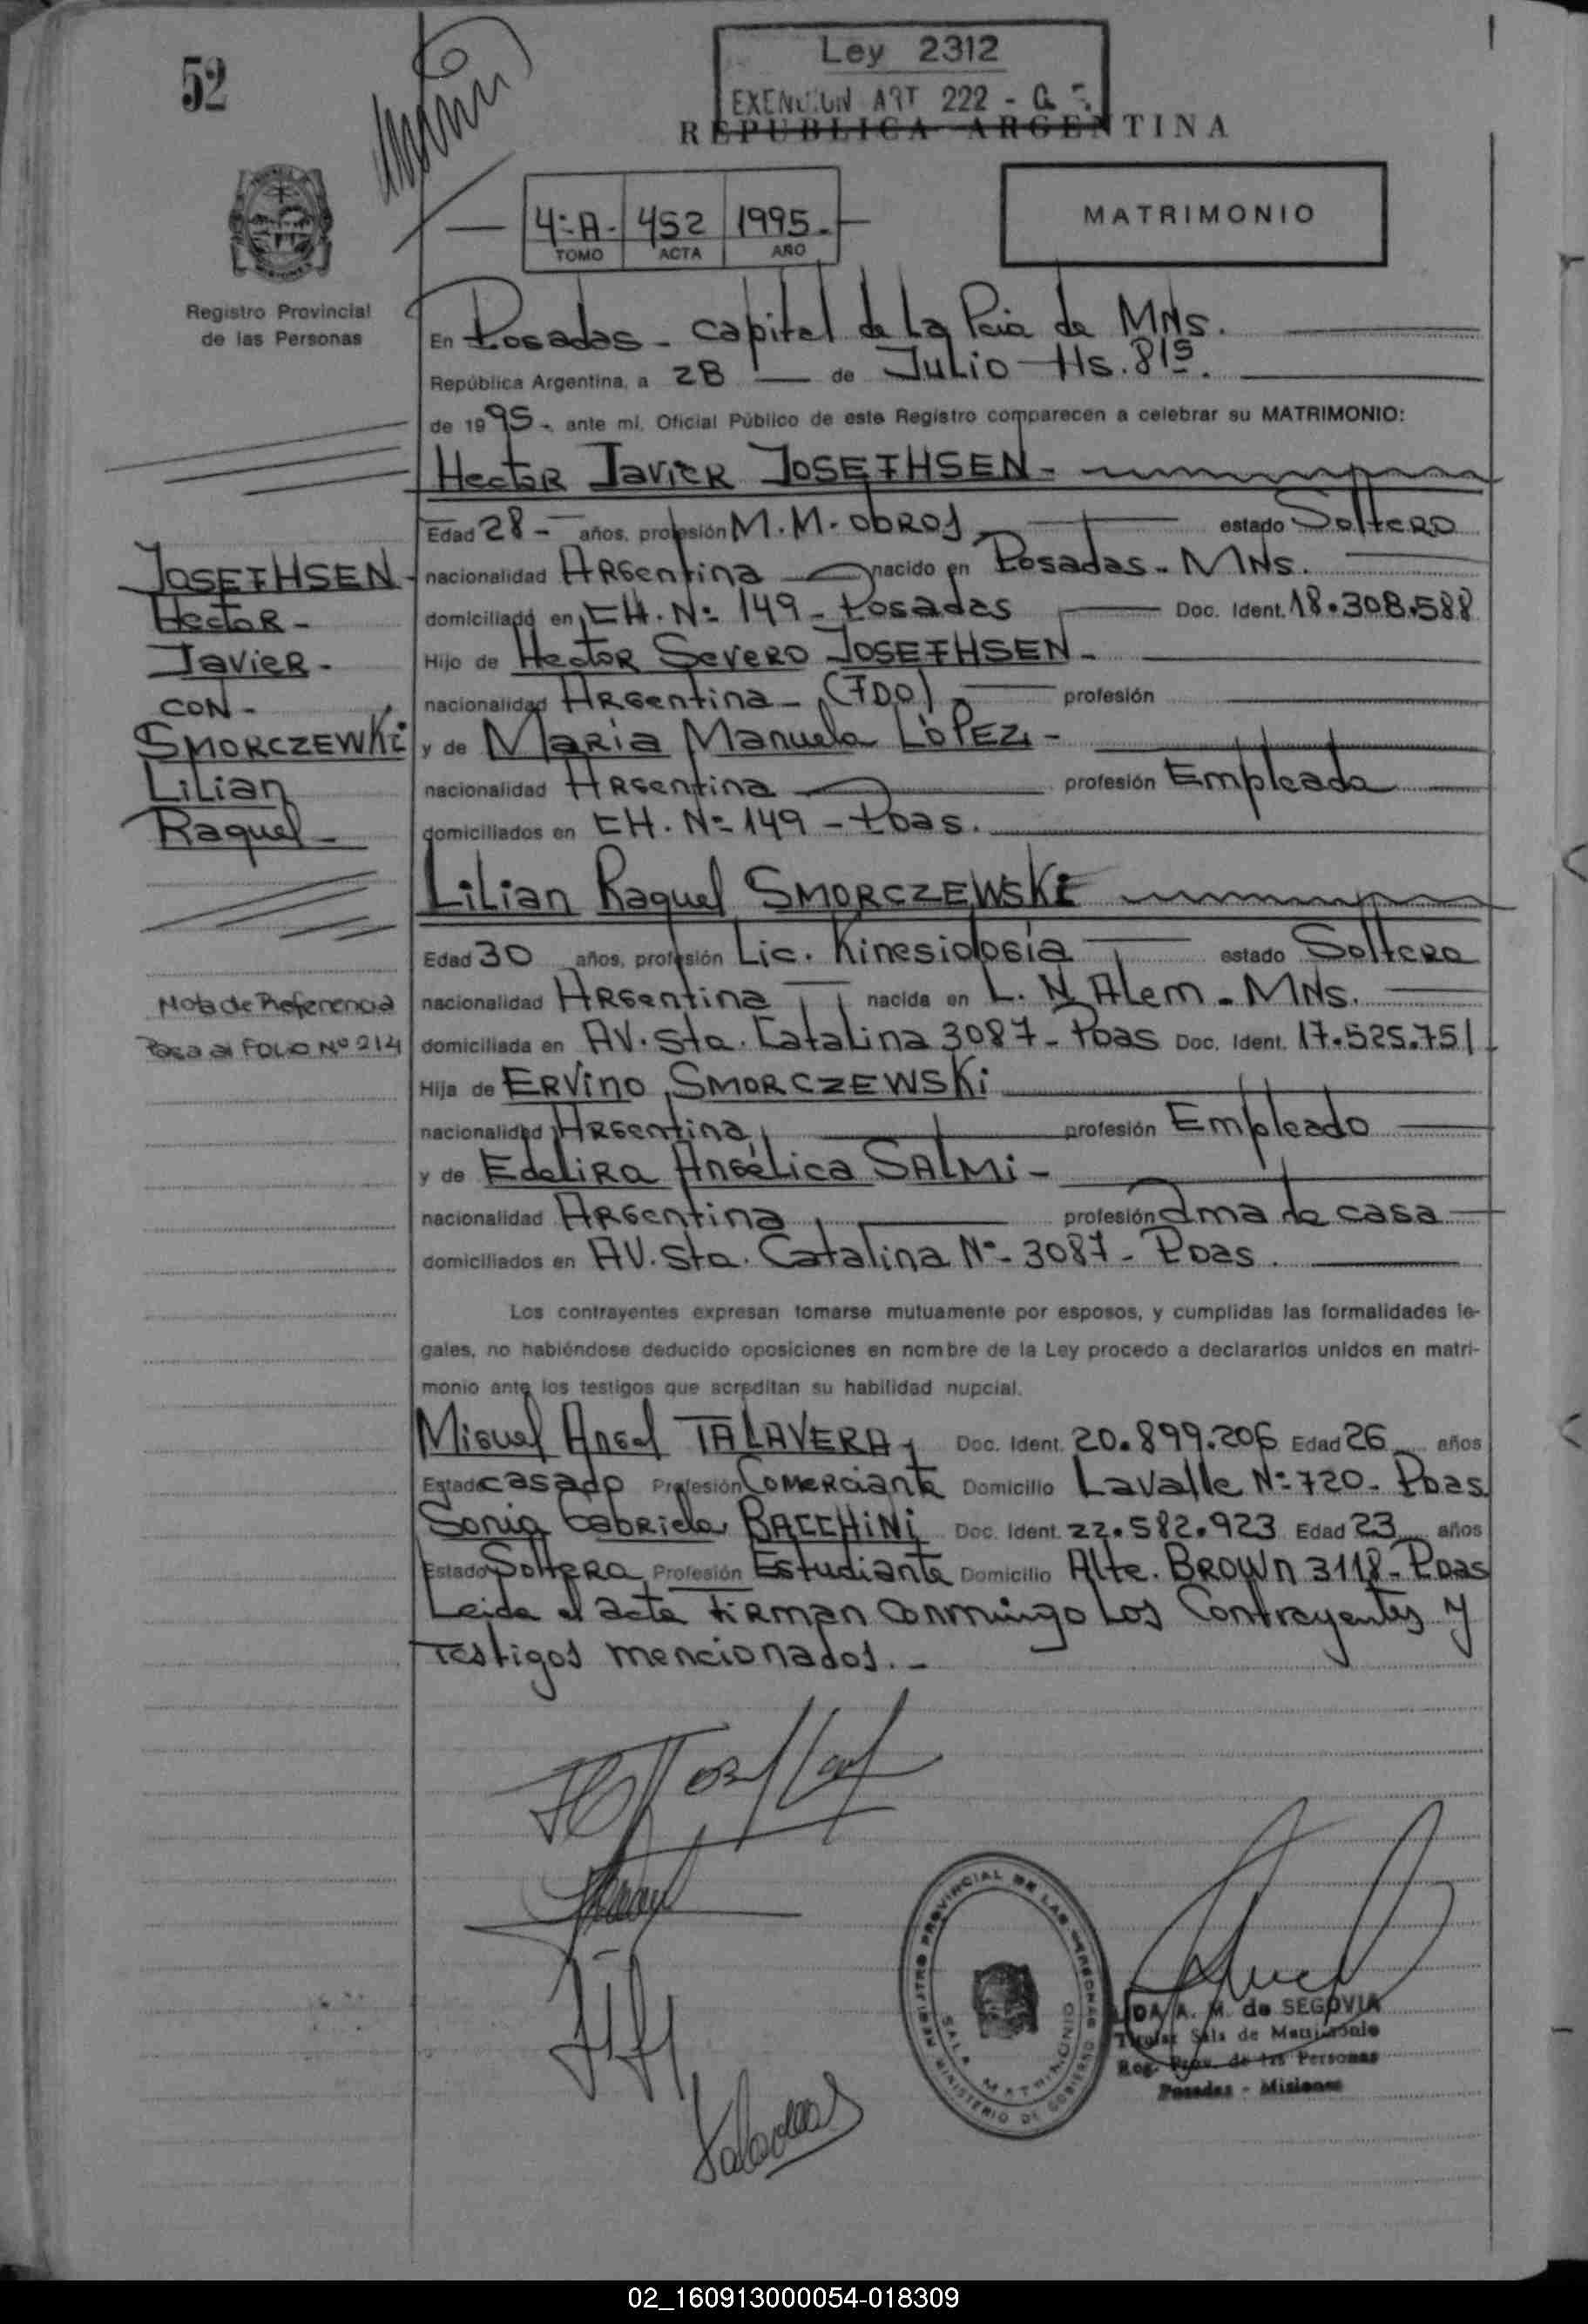 52
Ley 2312
EXENCION ART 222 -
REPUBLICA ARGENTINA
4:A- 452 1995.-
TOMO ACTA AÑO
MATRIMONIO
Registro Provincial
de las Personas
En Posadas - capital de La Pcia de MNs.
República Argentina, a 28 de Julio - Hs. 815.
de 1995-, ante mí, Oficial Público de este Registro comparecen a celebrar su MATRIMONIO:
Hector Javier JOSEFHSEN -
Edad 28 - años, profesión M.M. obros estado Soltero
nacionalidad Argentina nacido en Posadas - MNs.
domiciliado en CH. Nº 149 - Posadas Doc. Ident. 18.308.588
Hijo de Hector Severo JOSEFHSEN -
nacionalidad Argentina - (FDO) - profesión
y de Maria Manuela LÓPEZ -
nacionalidad Argentina profesión Empleada
domiciliados en CH. Nº 149 - Pdas.
JOSEFHSEN -
Hector -
Javier -
CON -
SMORCZEWKi
Lilian
Raquel -
Lilian Raquel SMORCZEWSKi
Edad 30 años, profesión Lic. Kinesiología estado Soltera
nacionalidad Argentina nacida en L. N Alem - MNs.
domiciliada en AV. Sta. Catalina 3087 - Pdas Doc. Ident. 17.525.751
Hija de Ervino SMORCZEWSKi
nacionalidad Argentina profesión Empleado
y de Edelira Angélica SALMi -
nacionalidad Argentina profesión Ama de casa
domiciliados en AV. Sta. Catalina Nº - 3087 - Pdas.
Nota de Referencia
Pasa al FOLIO Nº 214
Los contrayentes expresan tomarse mutuamente por esposos, y cumplidas las formalidades le-
gales, no habiéndose deducido oposiciones en nombre de la Ley procedo a declararlos unidos en matri-
monio ante los testigos que acreditan su habilidad nupcial.
Miguel Angel TALAVERA, Doc. Ident. 20.899.206 Edad 26 años
Estado casado Profesión Comerciante Domicilio Lavalle Nº 720 - Pdas
Sonia Gabriela BACCHiNi Doc. Ident. 22.582.923 Edad 23 años
Estado Soltera Profesión Estudiante Domicilio Alte. Brown 3118 - Pdas
Leida el acta firman conmingo Los Contrayentes y
Testigos mencionados. -
REGISTRO PROVINCIAL DE LAS PERSONAS
MINISTERIO DE GOBIERNO
SALA MATRIMONIO
LIDA A. M. de SEGOVIA
Titular Sala de Matrimonio
Reg. Prov. de las Personas
Posadas - Misiones
02_160913000054-018309